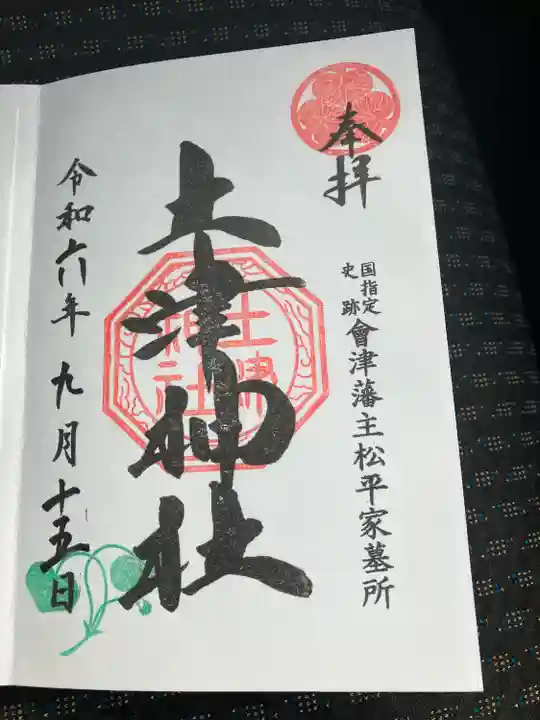 奉拝
国指定史跡
會津藩主松平家墓所
土津神社
土津神社
令和六年九月十五日